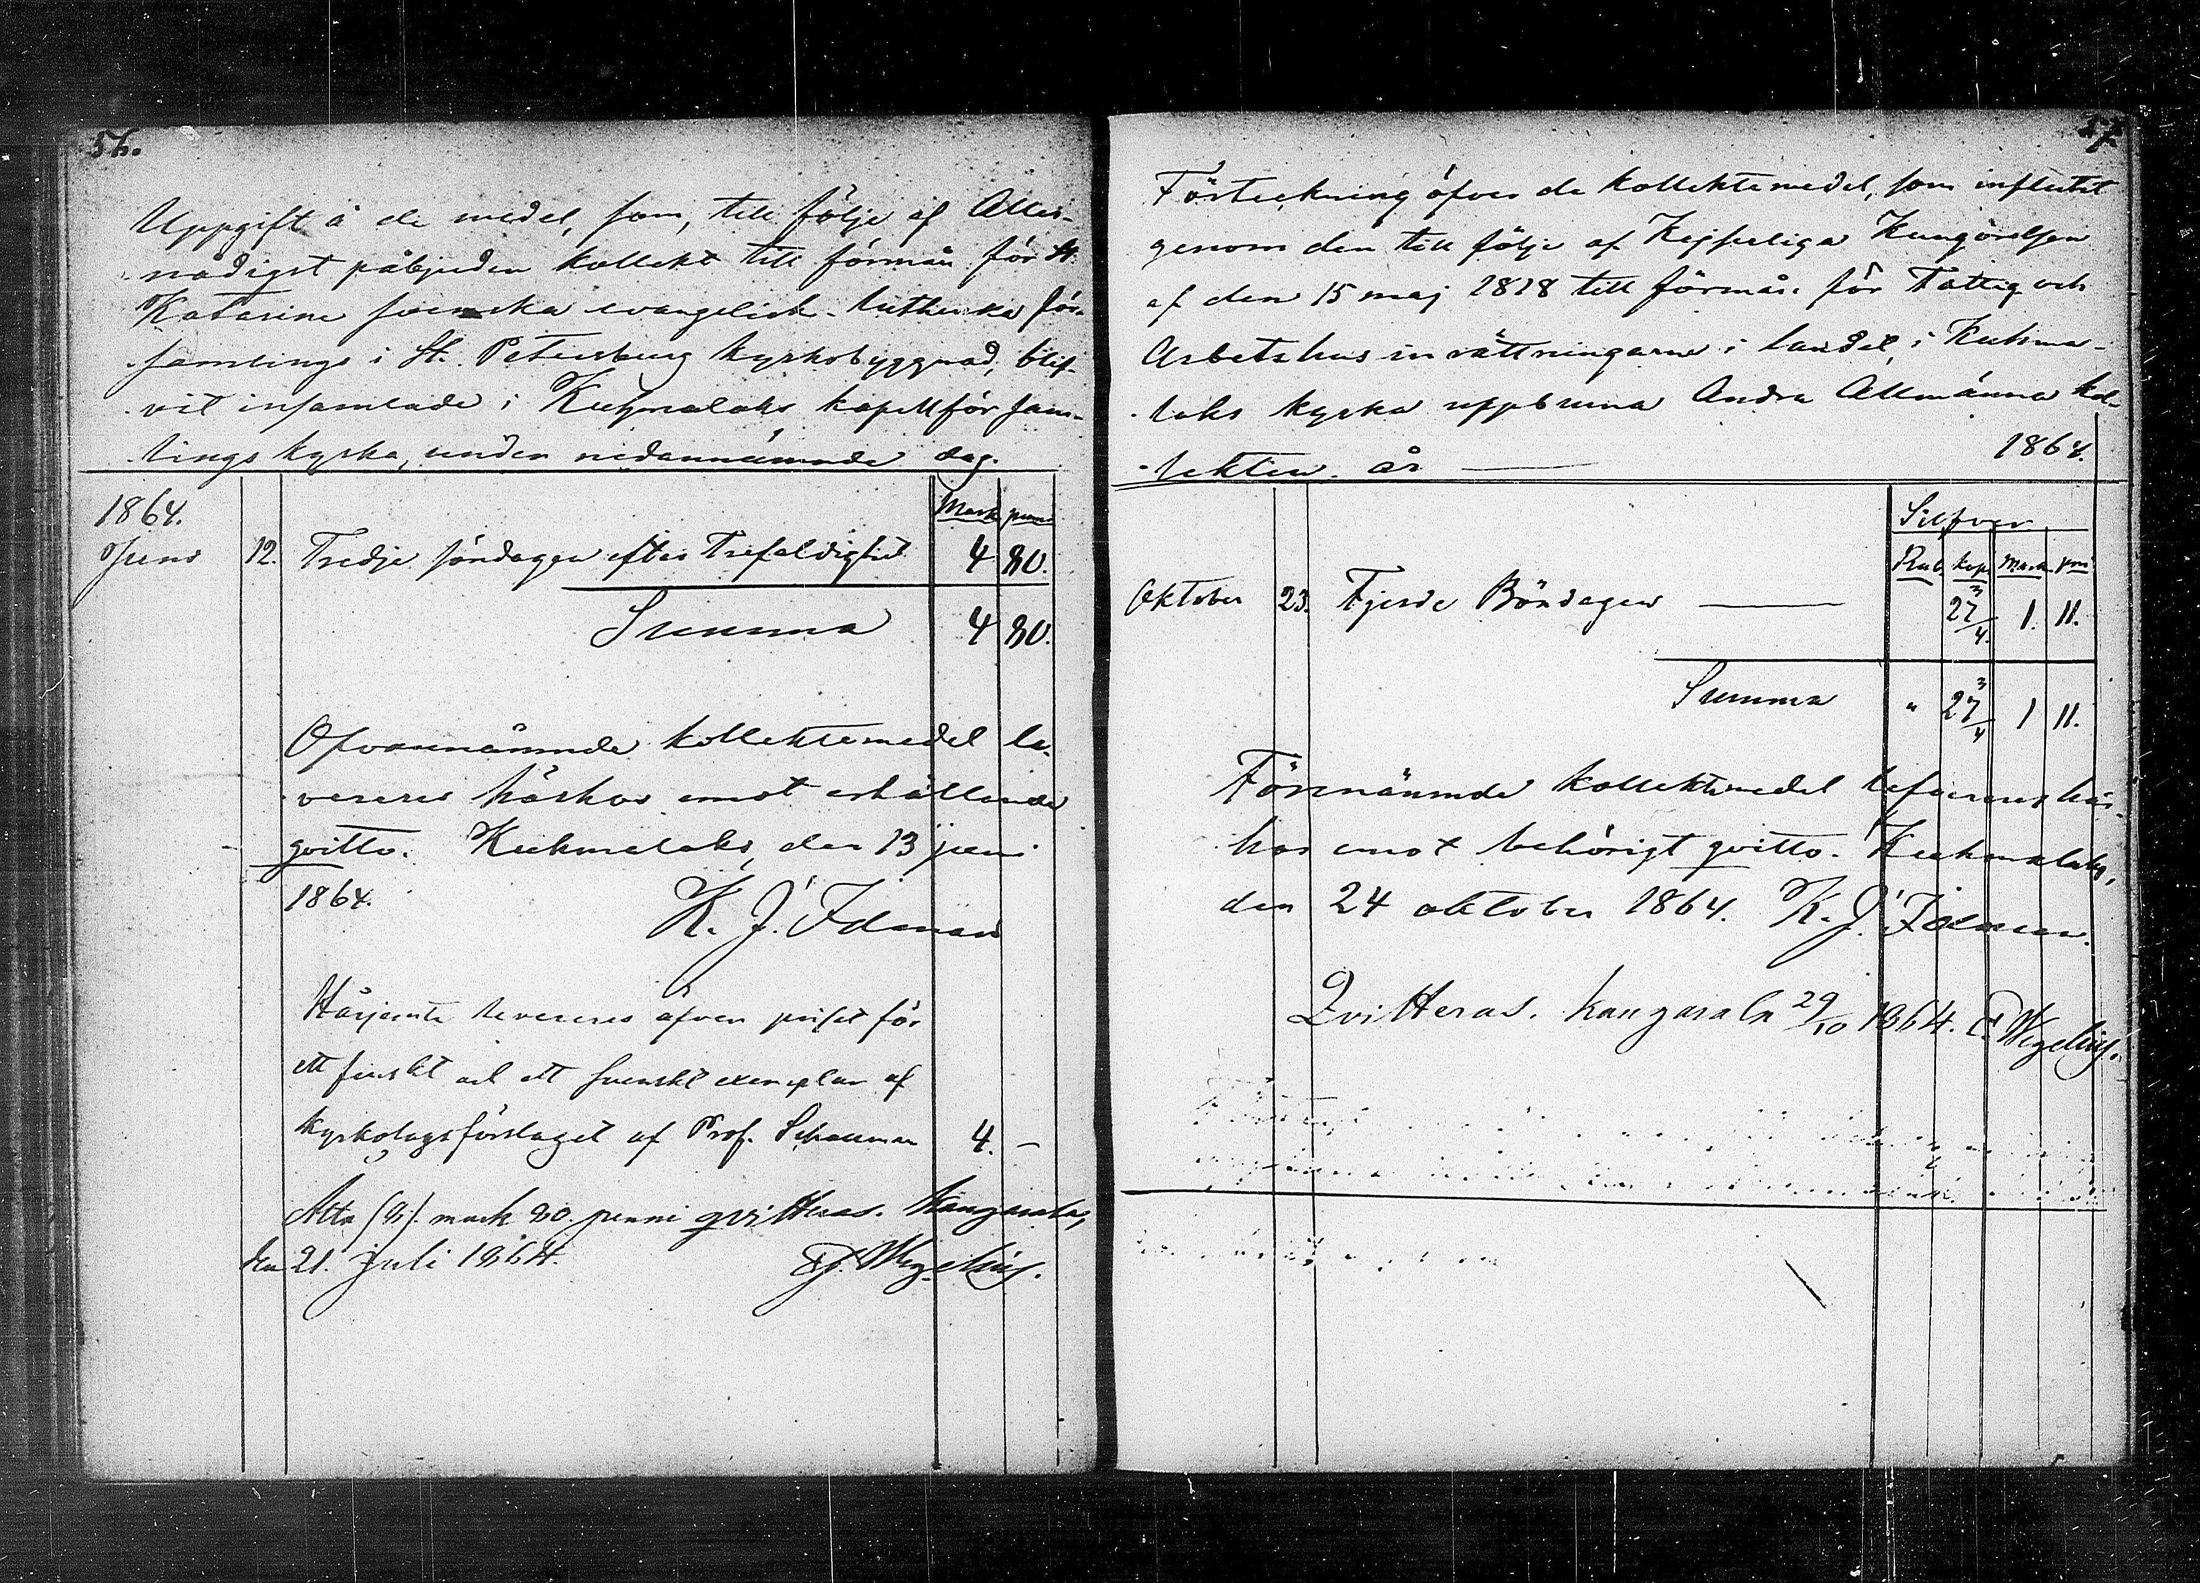 56.
Uppgift å de medel, som, till följe af Aller-
nådigst påbjuden kollekt till förmån för St.
Katarine svenska evangelisk-lutherska för-
samlings i St. Petersburg kyrkobyggnad, blif-
vit insamlade i Kuhmalaks kapellförsam-
lings kyrka, under nedannämnde dag.
Mark penni
1864.
Juni 12. Tredje söndagen efter Trefaldighet 4 80.
Summa 4 80.
Ofvannämnde kollektemedel le-
vereres härhos emot erhållande
qvitto. Kuhmalaks, den 13 juni
1864.
K. J. Idman
Härjemte levereres äfven priset för
ett finskt och ett svenskt exemplar af
kyrkolagsförslaget af Prof. Schauman 4. —
Åtta (8). mark 80. penni qvitteras. Kangasala,
den 21. juli 1864. Wegelius.
57.
Förteckning öfver de kollektemedel, som influtit
genom den till följe af Kejserliga Kungörelsen
af den 15 maj 1818 till förmån för Fattig och
Arbetshusinrättningarne i landet, i Kuhma-
laks kyrka uppburna Andra Allmänna kol-
lekten år — 1864.
Silfver
Rub. kop. Mark. pni
Oktober 23. Fjerde Böndagen — 27 3/4 1. 11.
Summa " 27 3/4 1 11.
Förenämnde kollektemedel levereres här-
hos emot behörigt qvitto. Kuhmalaks,
den 24 oktober 1864. K. J. Idman.
Qvitteras. Kangasala 29/10 1864. Wegelius.